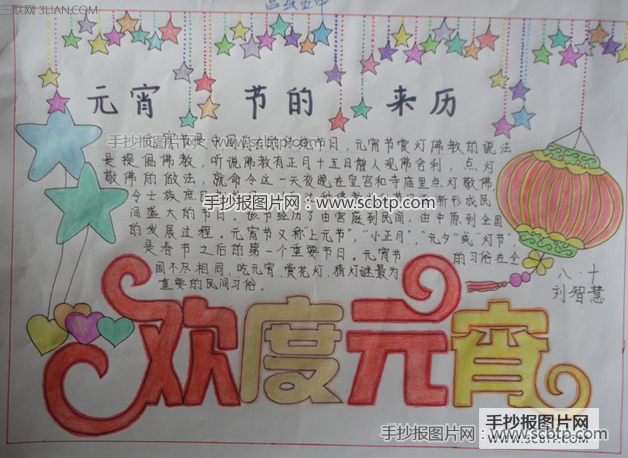 三联网 3LIAN.COM
元宵 节的 来历
手抄报图片网 - www.scbtp.com
宵节是中国 的 节日，元宵节赏灯佛教的说法
是提倡佛教，听说佛教有正月十五日僧人观佛舍利，点灯
敬佛的做法，就命令这一天夜晚在皇宫和寺庙里点灯敬佛，
令士族庶 渐形成民
手抄报图片网：www.scbtp.com
间盛大的节日。该节经历了由宫庭到民间，由中原到全国
的发展过程。元宵节又称"上元节"，"小正月"，"元夕"或"灯节"
是春节之后的第一个重要节日。元宵节 的习俗在全
国不尽相同，吃元宵，赏花灯，猜灯谜最为
重要的民间习俗。
八·十
刘智慧
欢度元宵
手抄报图片网：www.scbtp.com
手抄报图片网
WWW.SCBTP.COM
手抄报图片网：www.scbtp.com